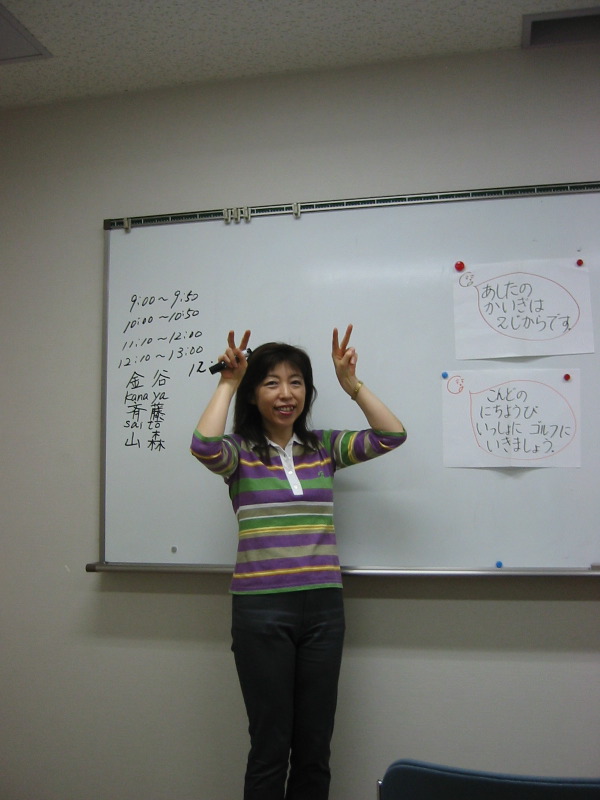 9:00〜9:50
10:00〜10:50
11:10〜12:00
12:10〜13:00
12:
金谷
kanaya
斉藤
saito
山森
あしたの
かいぎは
えじからです。
こんどの
にちようび
いっしょに ゴルフに
いきましょう。